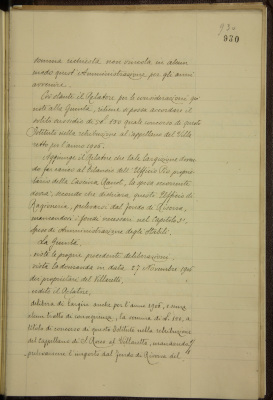 930
930
domanda richiesta non vincola in alcun
modo quest'Amministrazione per gli anni
avvenire.
Ciò stante il Relatore per le considerazioni
note alla Giunta, ritiene si possa accordare il
solito sussidio di L. 150 quale concorso di questo
Istituto nella retribuzione al cappellano del Villa
retto per l'anno 1906.
Aggiunge il Relatore che tale largizione
do far carico al bilancio dell'Ufficio Pio
la spesa occorrente
dovrà, secondo che dichiara questo Ufficio di
Ragioneria, prelevarsi dal fondo di Riserva,
mancandovi i fondi necessari nel Capitolo
Spese di Amministrazione degli Stabili.
La Giunta,
viste le proprie precedenti deliberazioni,
vista la domanda in data 27 Novembre 1906
dei proprietari del Villaretto,
udito il Relatore,
delibera di largire anche per l'anno 1906, e senza
alcun titolo di conseguenza, la somma di L. 150, a
titolo di concorso di questo Istituto nella retribuzione
del cappellano di S. Rocco al Villaretto, mandando
prelevarsene l'importo dal fondo di Riserva del